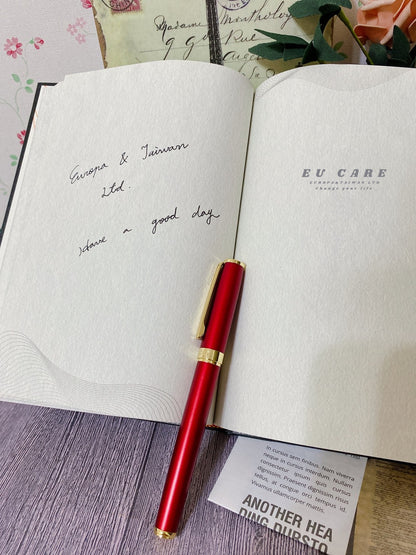 Madame Mantholy
99 Rue
Europa & Taiwan
Ltd.
Have a good day
EU CARE
EUROPA&TAIWAN LTD
Change your life
In cursus sem finibus. Nam viverra
neque in cursus interdum. Nullam
consectetur ipsum quis cursus
dignissim. Praesent dignissim risus
tellus, at congue orci tempus id.
Vivamus ullamcorper mattis.
ANOTHER HEA
DING DUBSTO